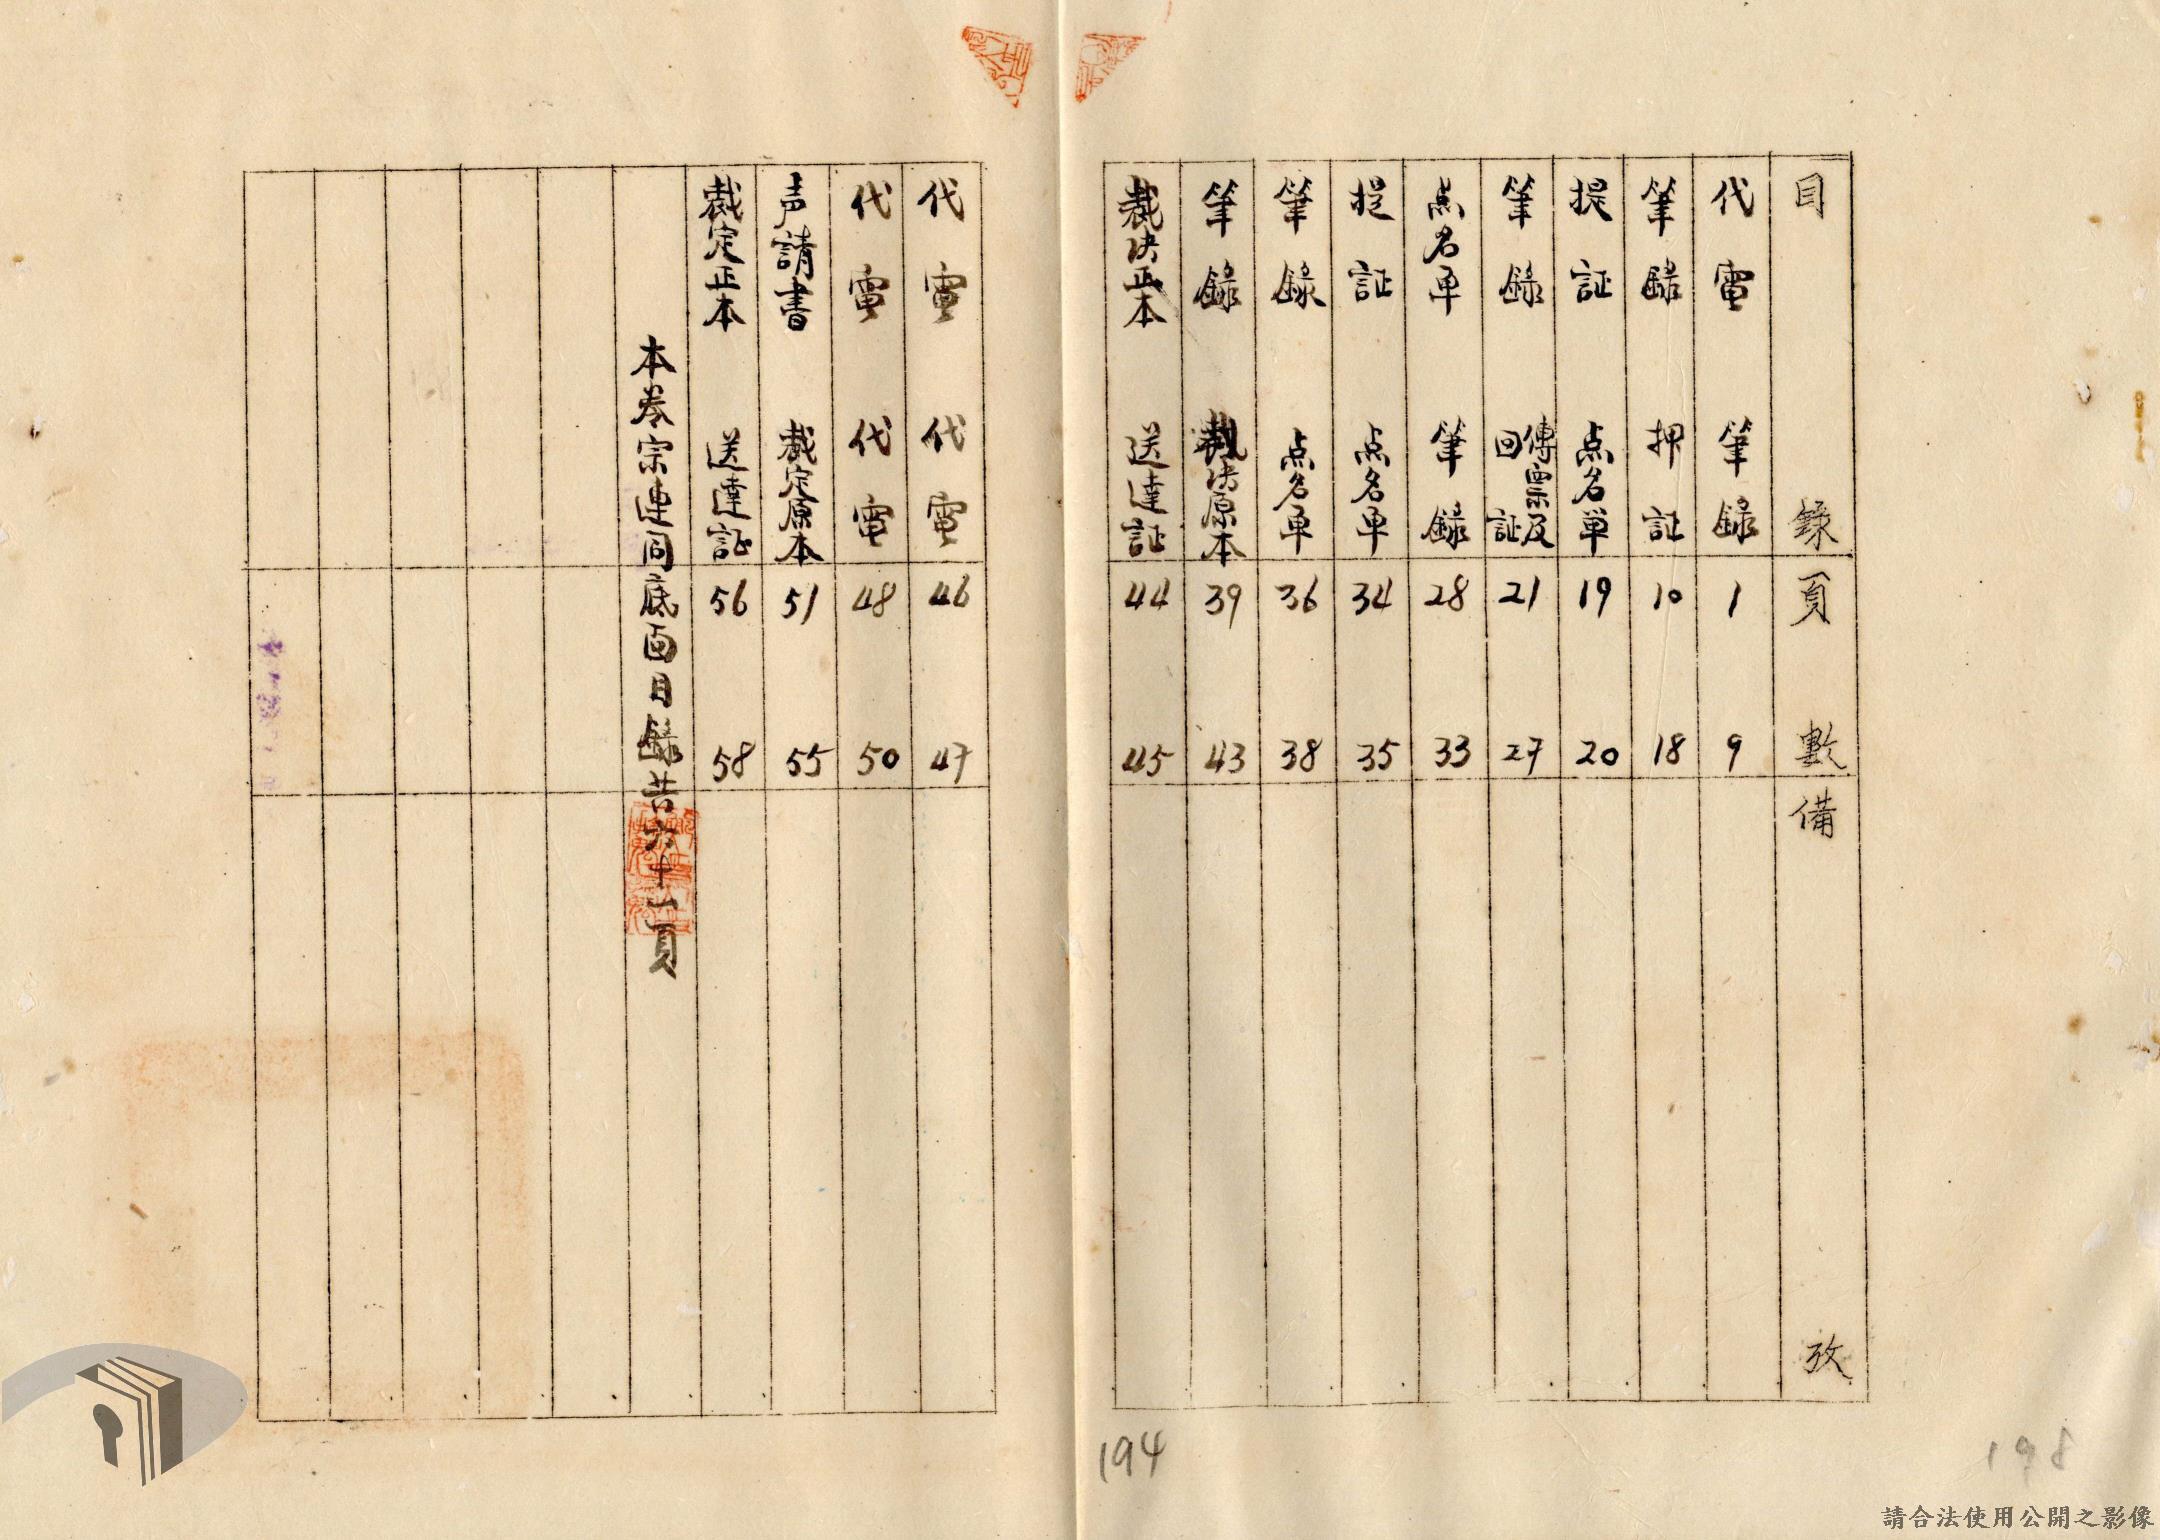 目錄 頁數 備攷
代電 筆錄 1 9
筆錄 押証 10 18
提証 点名单 19 20
筆錄 傳票及回証 21 27
点名单 筆錄 28 33
提証 点名单 34 35
筆錄 点名单 36 38
筆錄 裁决原本 39 43
裁决正本 送達証 44 45
代電 代電 46 47
代電 代電 48 50
声請書 裁定原本 51 55
裁定正本 送達証 56 58
本卷宗連同底面目錄共六十一頁
194
198
請合法使用公開之影像